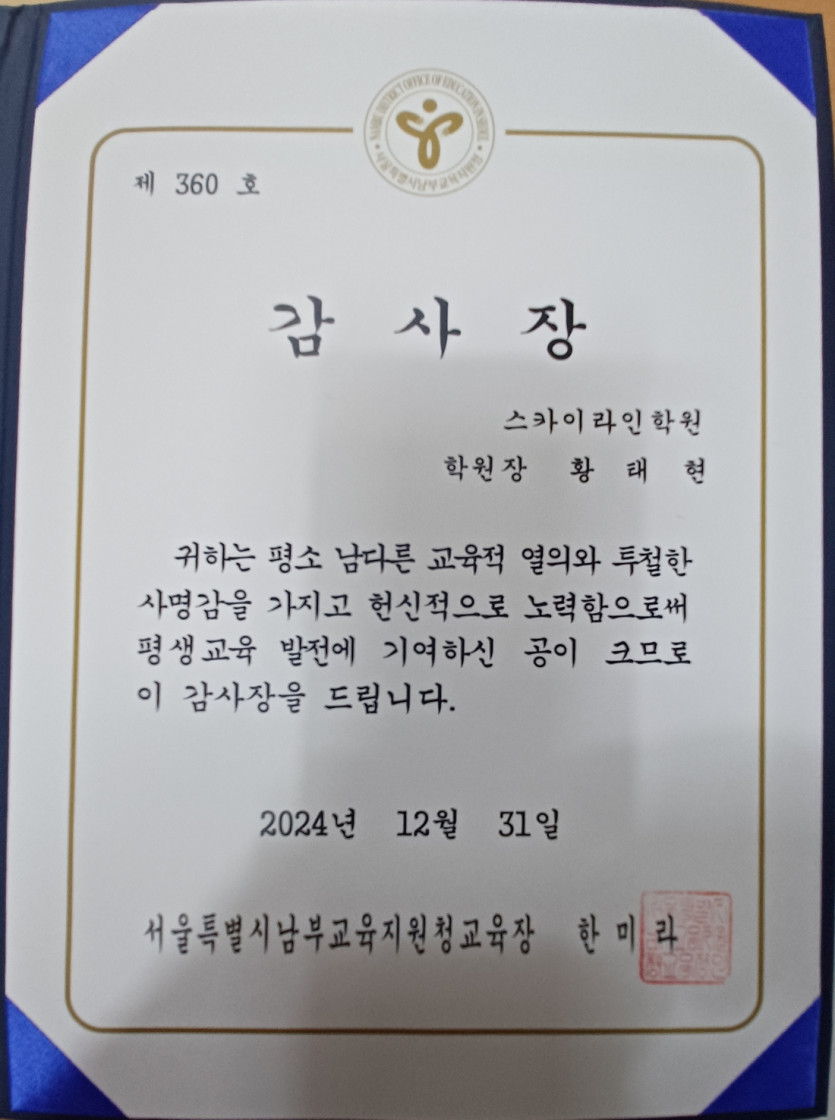 NAMBU DISTRICT OFFICE OF EDUCATION IN SEOUL
서울특별시남부교육지원청
제 360 호
감 사 장
스카이라인학원
학원장 황 태 현
귀하는 평소 남다른 교육적 열의와 투철한
사명감을 가지고 헌신적으로 노력함으로써
평생교육 발전에 기여하신 공이 크므로
이 감사장을 드립니다.
2024년 12월 31일
서울특별시남부교육지원청교육장 한 미 라